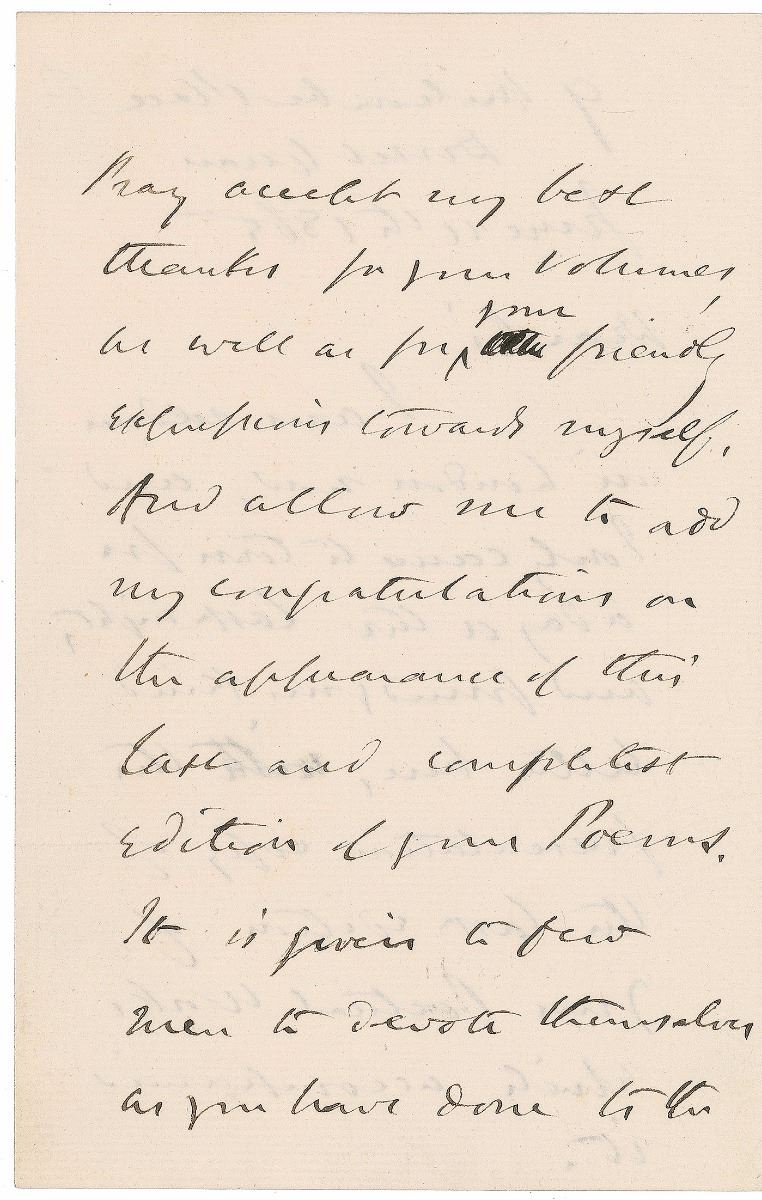 Pray accept my best
thanks for your Volumes,
as well as for your friendly
expressions towards myself.
And allow me to add
my congratulations on
the appearance of this
last and completest
Edition of your Poems.
It is given to few
men to devote themselves
as you have done to the